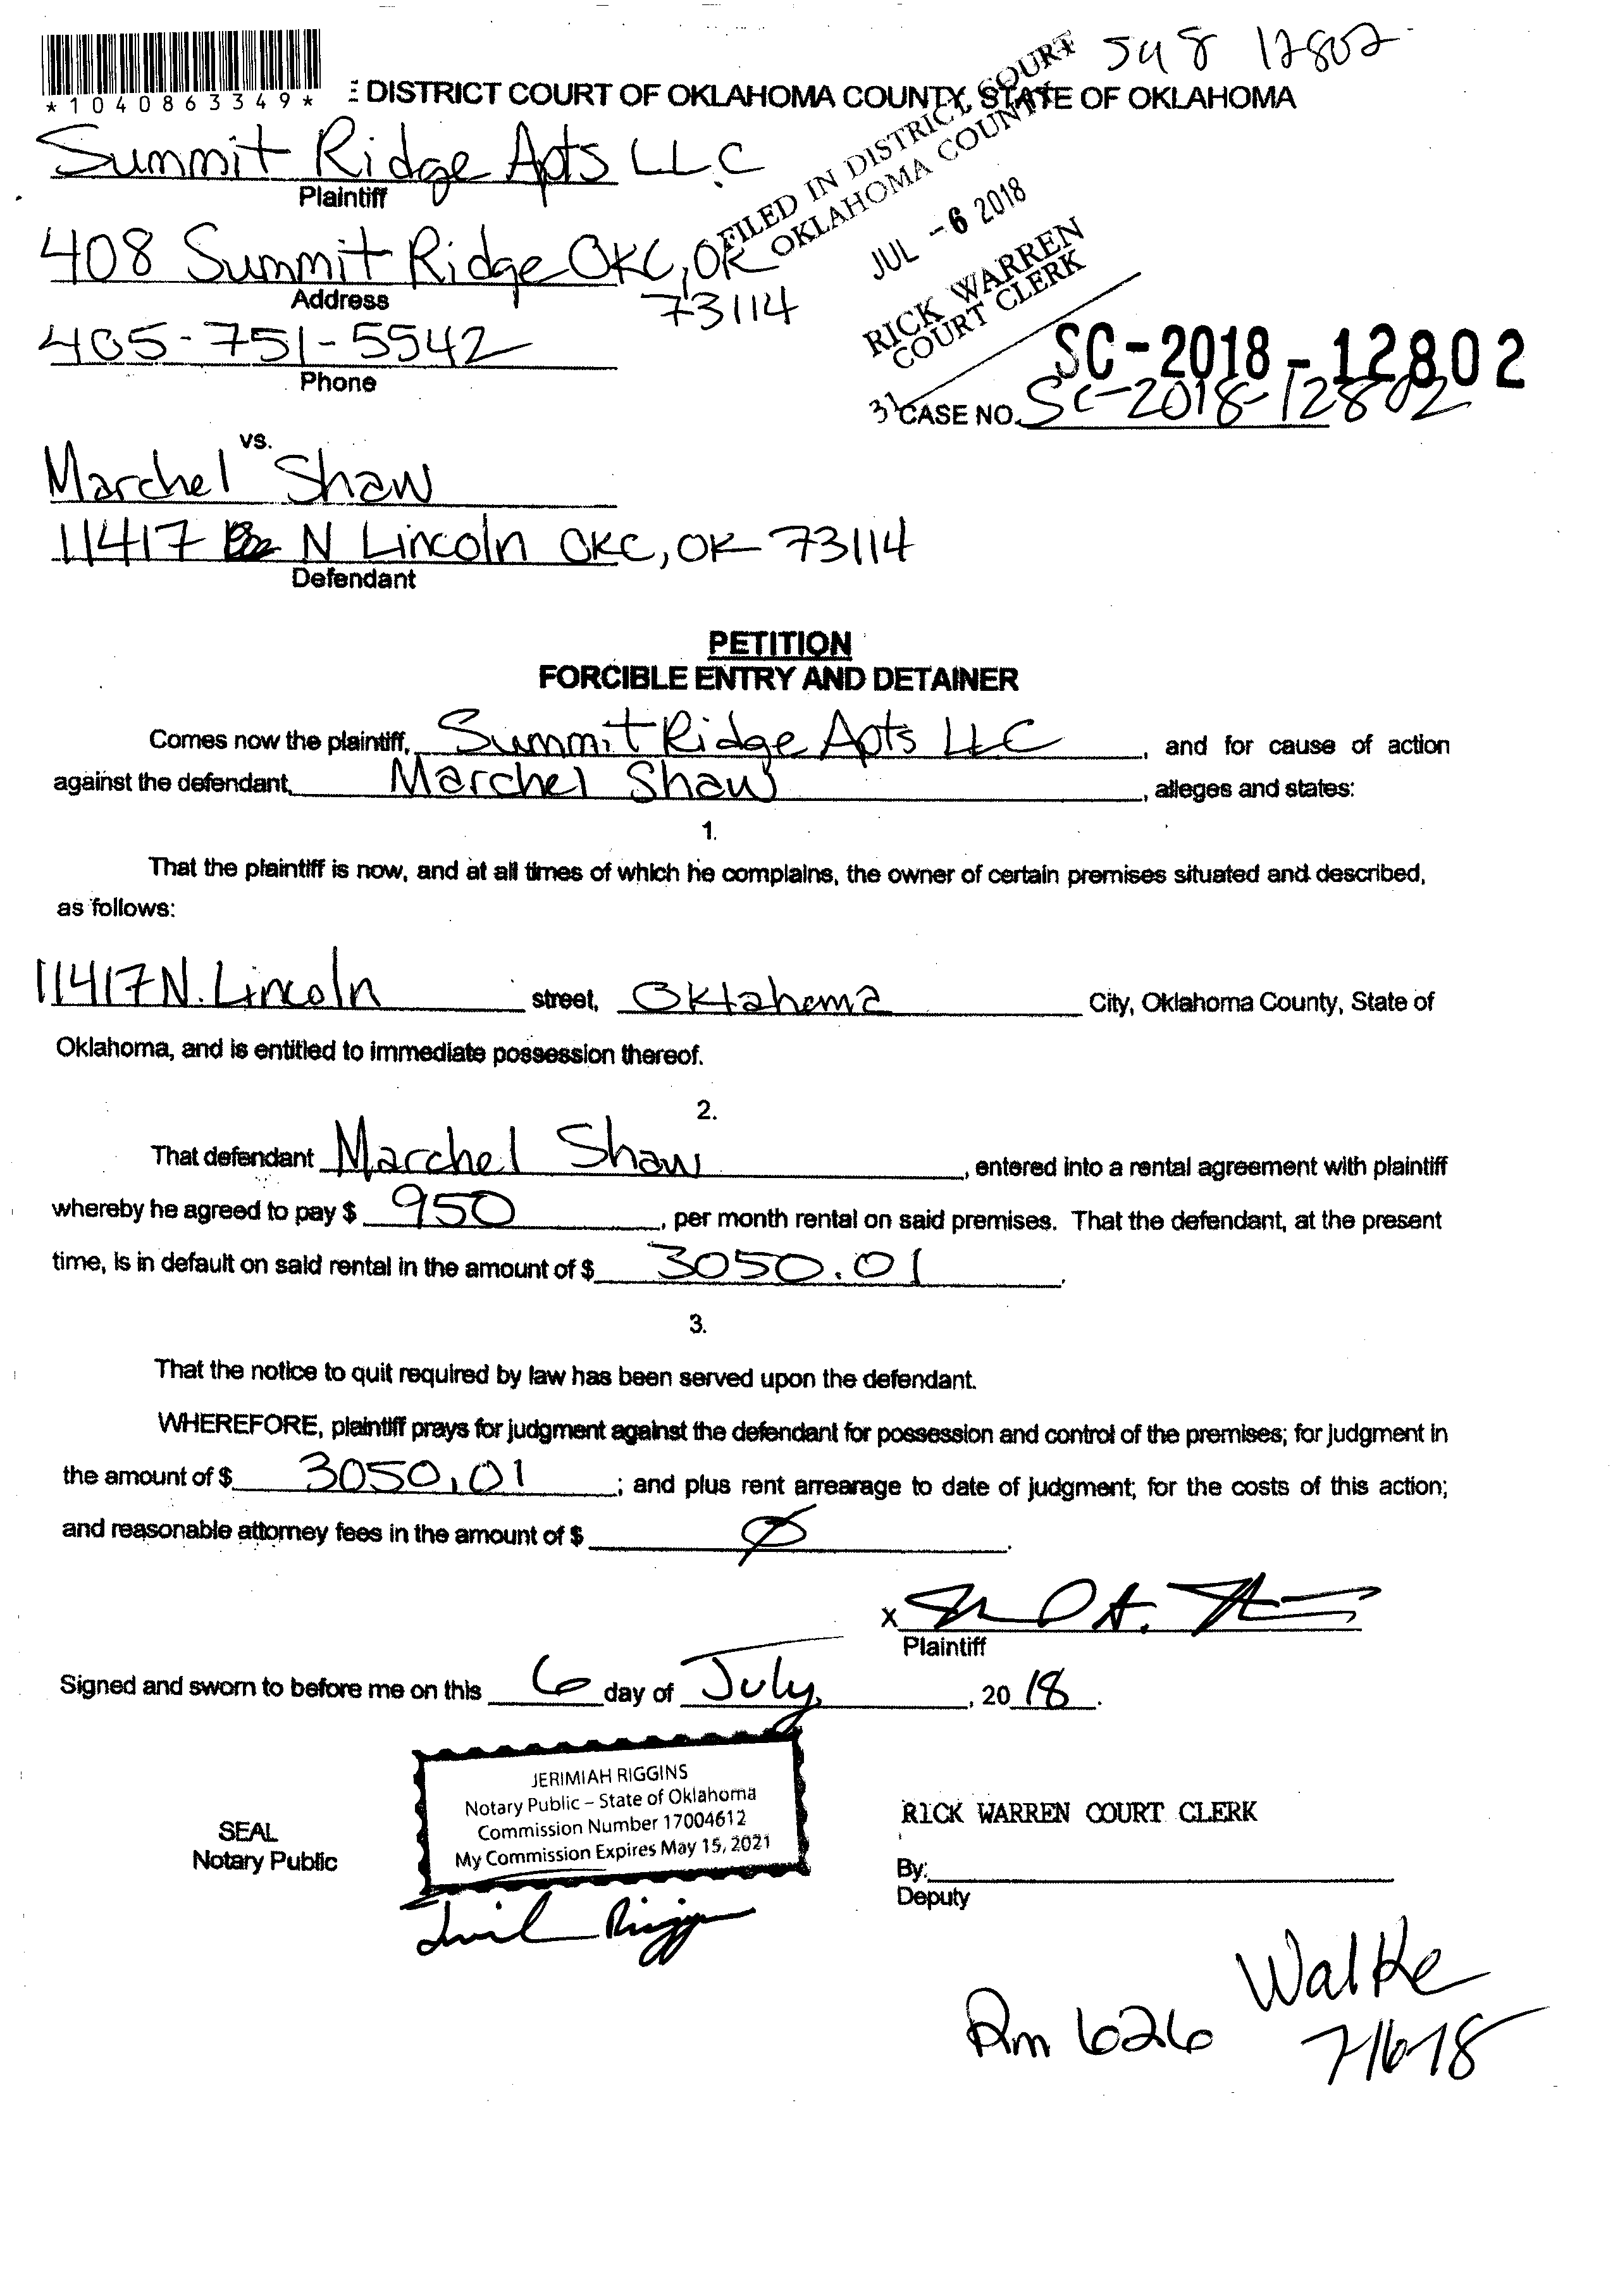 548 12802
*1040863349*
DISTRICT COURT OF OKLAHOMA COUNTY, STATE OF OKLAHOMA
Summit Ridge Apts LLC
Plaintiff
FILED IN DISTRICT COURT
OKLAHOMA COUNTY
JUL -6 2018
RICK WARREN
COURT CLERK
31
408 Summit Ridge OKC, OK
73114
Address
405-751-5542
Phone
SC-2018-12802
CASE NO. SC-2018-12802
vs.
Marchel Shaw
11417 N Lincoln OKC, OK 73114
Defendant
PETITION
FORCIBLE ENTRY AND DETAINER
Comes now the plaintiff, Summit Ridge Apts LLC, and for cause of action
against the defendant, Marchel Shaw, alleges and states:
1.
That the plaintiff is now, and at all times of which he complains, the owner of certain premises situated and described,
as follows:
11417 N. Lincoln street, Oklahoma City, Oklahoma County, State of
Oklahoma, and is entitled to immediate possession thereof.
2.
That defendant Marchel Shaw, entered into a rental agreement with plaintiff
whereby he agreed to pay $ 950, per month rental on said premises. That the defendant, at the present
time, is in default on said rental in the amount of $ 3050.01.
3.
That the notice to quit required by law has been served upon the defendant.
WHEREFORE, plaintiff prays for judgment against the defendant for possession and control of the premises; for judgment in
the amount of $ 3050.01; and plus rent arrearage to date of judgment; for the costs of this action;
and reasonable attorney fees in the amount of $ Ø.
X
Plaintiff
Signed and sworn to before me on this 6 day of July, 2018.
JERIMIAH RIGGINS
Notary Public – State of Oklahoma
Commission Number 17004612
My Commission Expires May 15, 2021
SEAL
Notary Public
RICK WARREN COURT CLERK
By:
Deputy
Walke
Rm 626
7-16-18